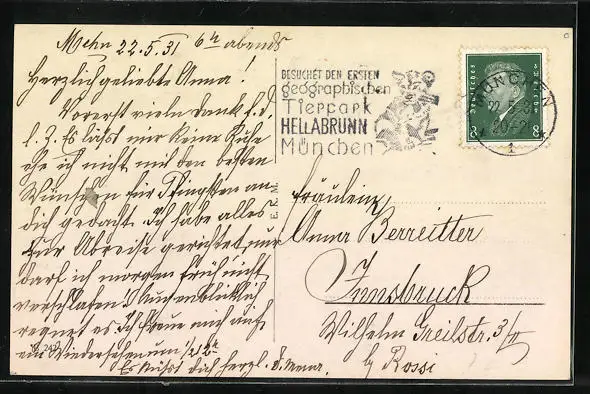 Mchn 22.5.31 6h abends
Herzlichgeliebte Anna!
Vorerst vielen Dank f. d.
l. Z. Es lässt mir keine Ruhe
ehe ich nicht mit den besten
Wünschen für Pfingsten an
dich gedacht. Ich habe alles
zur Abreise gerichtet, nur
darf ich morgen früh nicht
verschlafen. Augenblicklich
regnet es. Ich freue mich auf
ein Wiedersehen um 1/2
Es küsst dich herzl. d.
BESUCHET DEN ERSTEN
geographischen
Tierpark
HELLABRUNN
München
MÜNCHEN
22.5.31
20-21
1
Deutsches Reich
8 8
E.K.M.
Fräulein
Anna Berreitter
Innsbruck
Wilhelm Greilstr. 3/II
by Rossi